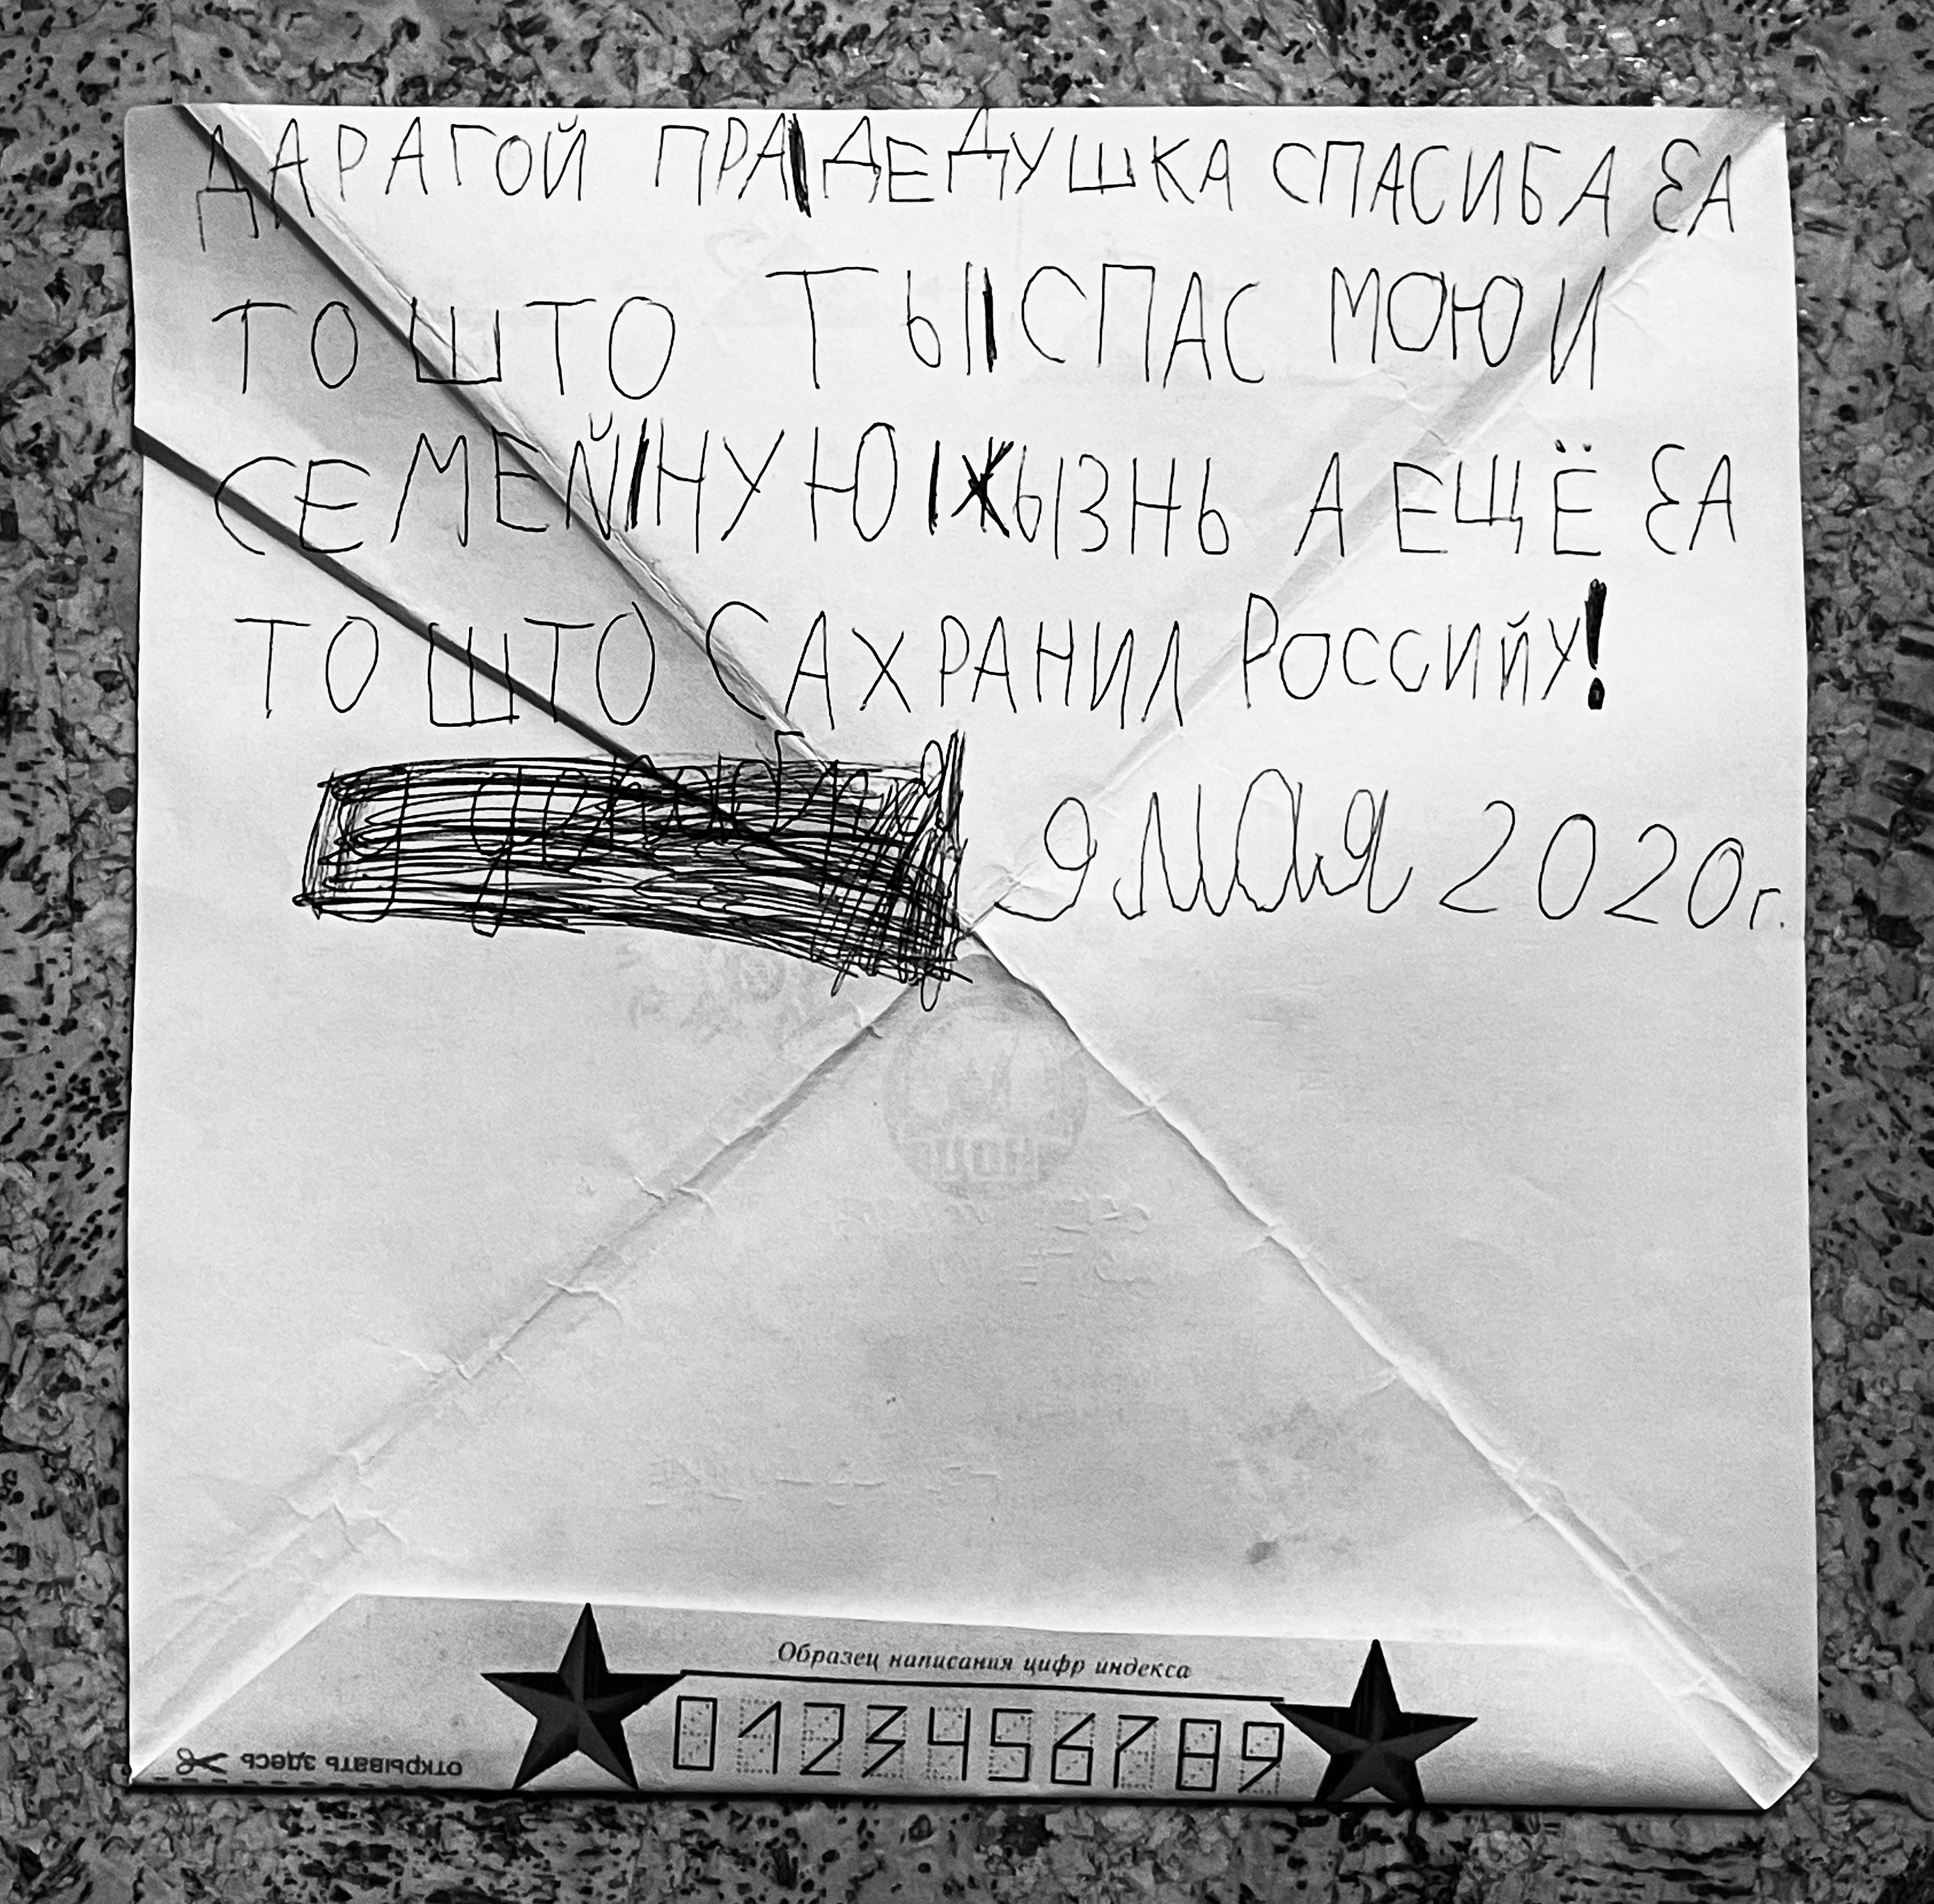 ДАРАГОЙ ПРА|ДЕДУШКА СПАСИБА ЗА
ТО ШТО ТЫ|СПАС МОЮ И
СЕМЕЙ|НУЮ|ЖЫЗНЬ А ЕЩЁ ЗА
ТО ШТО САХРАНИЛ РОССИЙУ!
9 мая 2020г.
Образец написания цифр индекса
0123456789
открывать здесь